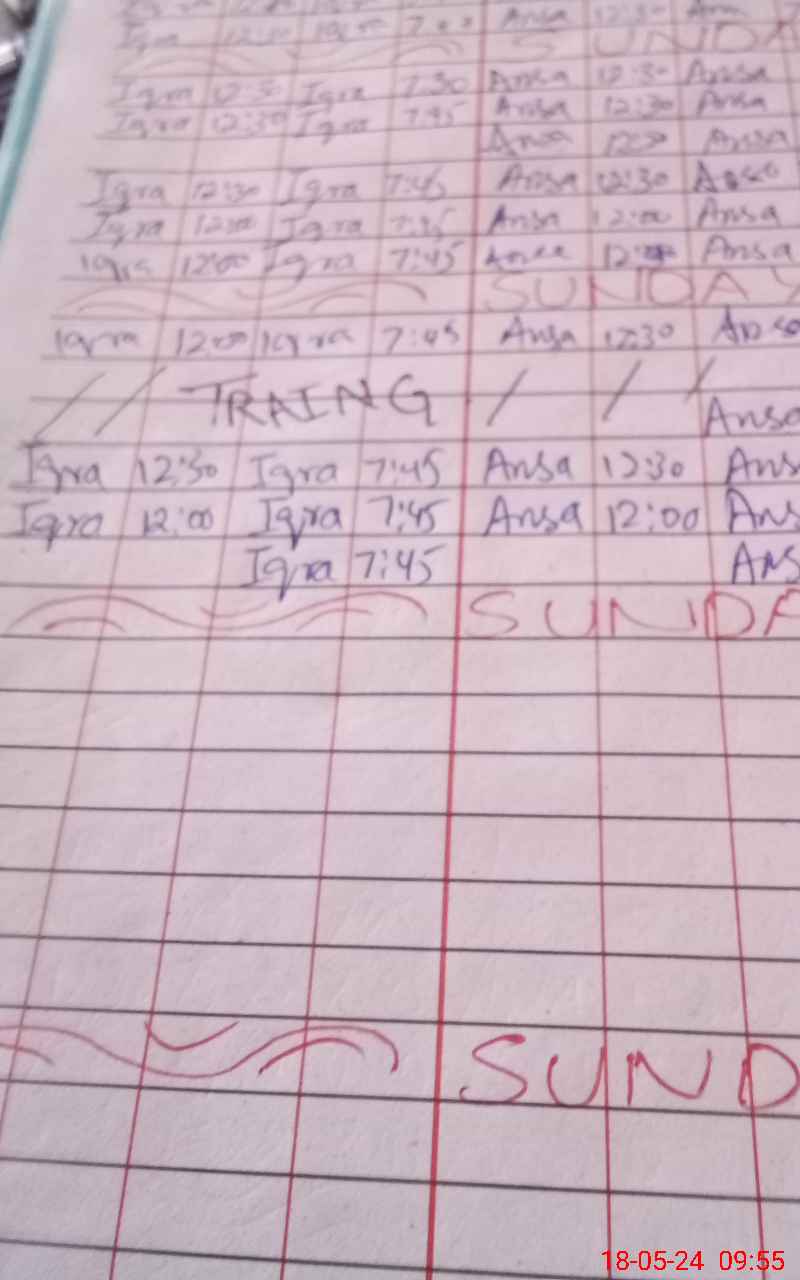 Iqra 7:00 Ansa 12:30
SUNDA
Iqra 12:30 Iqra 7:30 Ansa 12:30 Ansa
Iqra 12:30 Iqra 7:45 Ansa 12:30 Ansa
Ansa Ansa
Iqra 12:30 Iqra 7:45 Ansa 12:30 Ansa
Iqra 12:00 Iqra 7:45 Ansa 12:00 Ansa
Iqra 12:00 Iqra 7:45 Ansa Ansa
SUNDAY
Iqra 12:00 Iqra 7:45 Ansa 12:30 Ansa
/ / TRAING / / / Ansa
Iqra 12:30 Iqra 7:45 Ansa 12:30 Ans
Iqra 12:00 Iqra 7:45 Ansa 12:00 Ans
Iqra 7:45 Ans
SUNDA
SUND
18-05-24 09:55